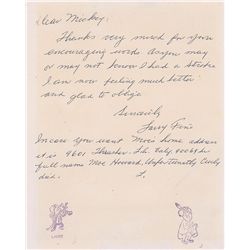 Dear Mickey:
Thanks very much for your
encouraging words. As you may
or may not know I had a stroke
I am now feeling much better
and glad to oblige
Sincerely
Larry Fine
In case you want Moe's home address
it is 9601 L.A. Calif. 90069
full name Moe Howard, Unfortunately Curly
died.
L.
LARRY